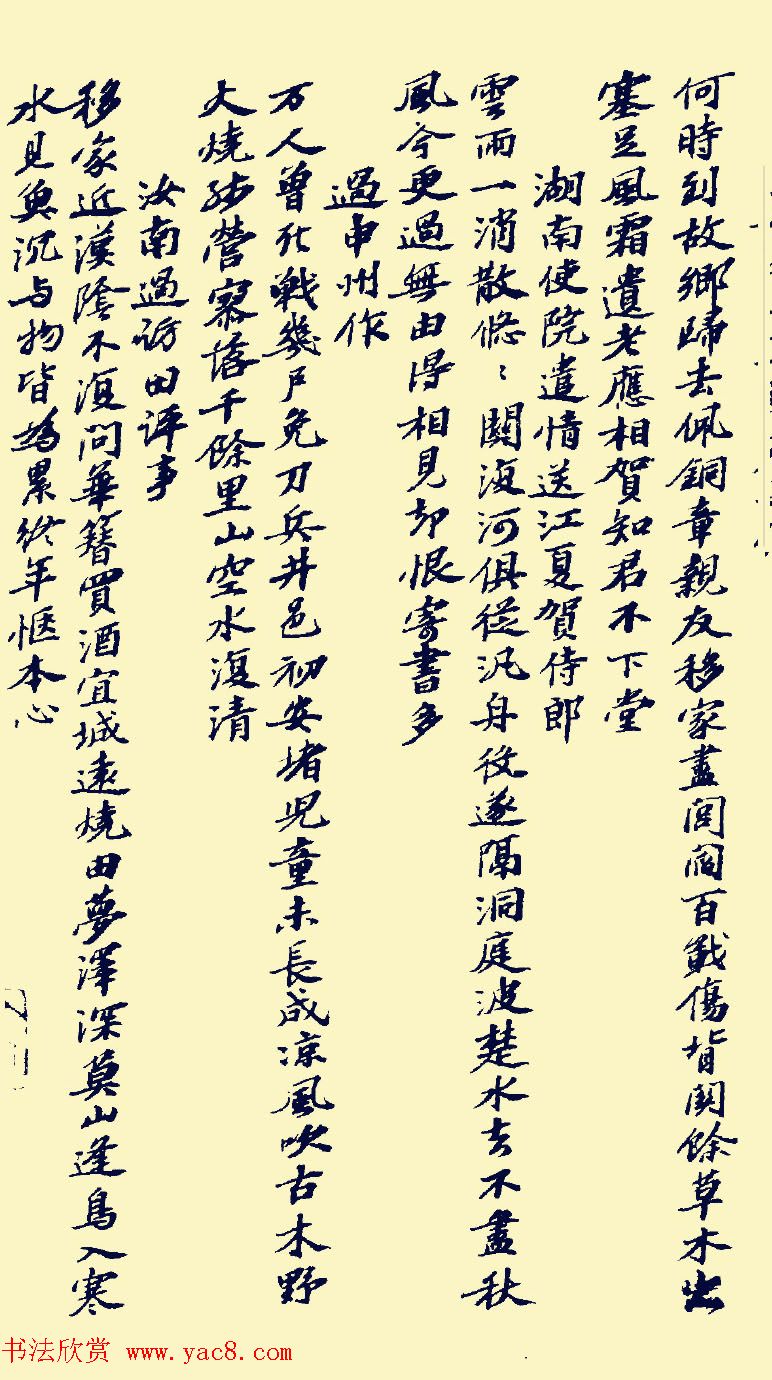 何時到故鄉歸去佩銅章親友移家盡閭閻百戰傷背関餘草木出
塞足風霜遺老應相賀知君不下堂
湖南使院遣情送江夏賀侍郎
雲雨一消散悠〻關復河俱從汎舟役遂隔洞庭波楚水去不盡秋
風今更過無由得相見却恨寄書多
過申州作
万人曾死戰幾戶免刀兵井邑初安堵児童未長成凉風吹古木野
火燒殘營寥落千餘里山空水復清
汝南過訪田評事
移家近漢陰不復問華簪買酒宜城遠燒田夢澤深莫山逢鳥入寒
水見魚沉与物皆為累終年愜本心
书法欣赏 www.yac8.com